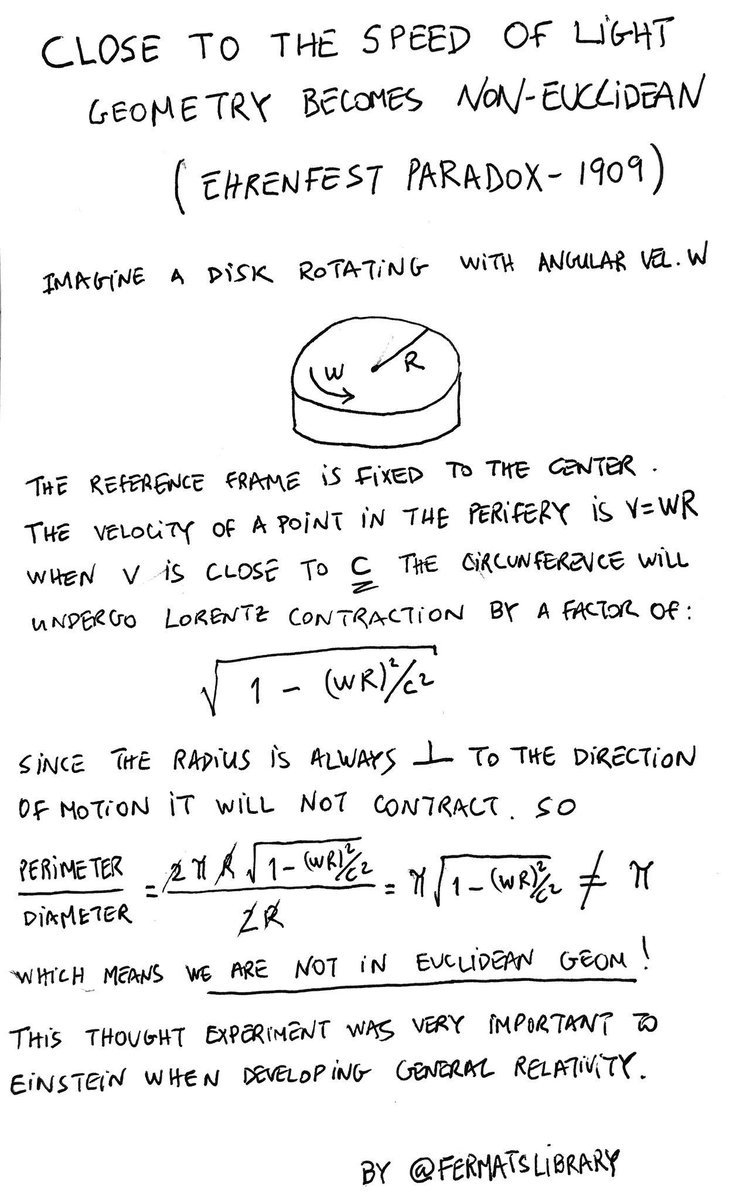 CLOSE TO THE SPEED OF LIGHT
GEOMETRY BECOMES NON-EUCLIDEAN
(EHRENFEST PARADOX - 1909)
IMAGINE A DISK ROTATING WITH ANGULAR VEL. W
W R
THE REFERENCE FRAME IS FIXED TO THE CENTER.
THE VELOCITY OF A POINT IN THE PERIFERY IS V=WR
WHEN V IS CLOSE TO C THE CIRCUNFERENCE WILL
UNDERGO LORENTZ CONTRACTION BY A FACTOR OF:
√(1 - (WR)²/C²)
SINCE THE RADIUS IS ALWAYS ⊥ TO THE DIRECTION
OF MOTION IT WILL NOT CONTRACT. SO
PERIMETER/DIAMETER = 2πR√(1-(WR)²/C²)/2R = π√(1-(WR)²/C²) ≠ π
WHICH MEANS WE ARE NOT IN EUCLIDEAN GEOM!
THIS THOUGHT EXPERIMENT WAS VERY IMPORTANT TO
EINSTEIN WHEN DEVELOPING GENERAL RELATIVITY.
BY @FERMATSLIBRARY